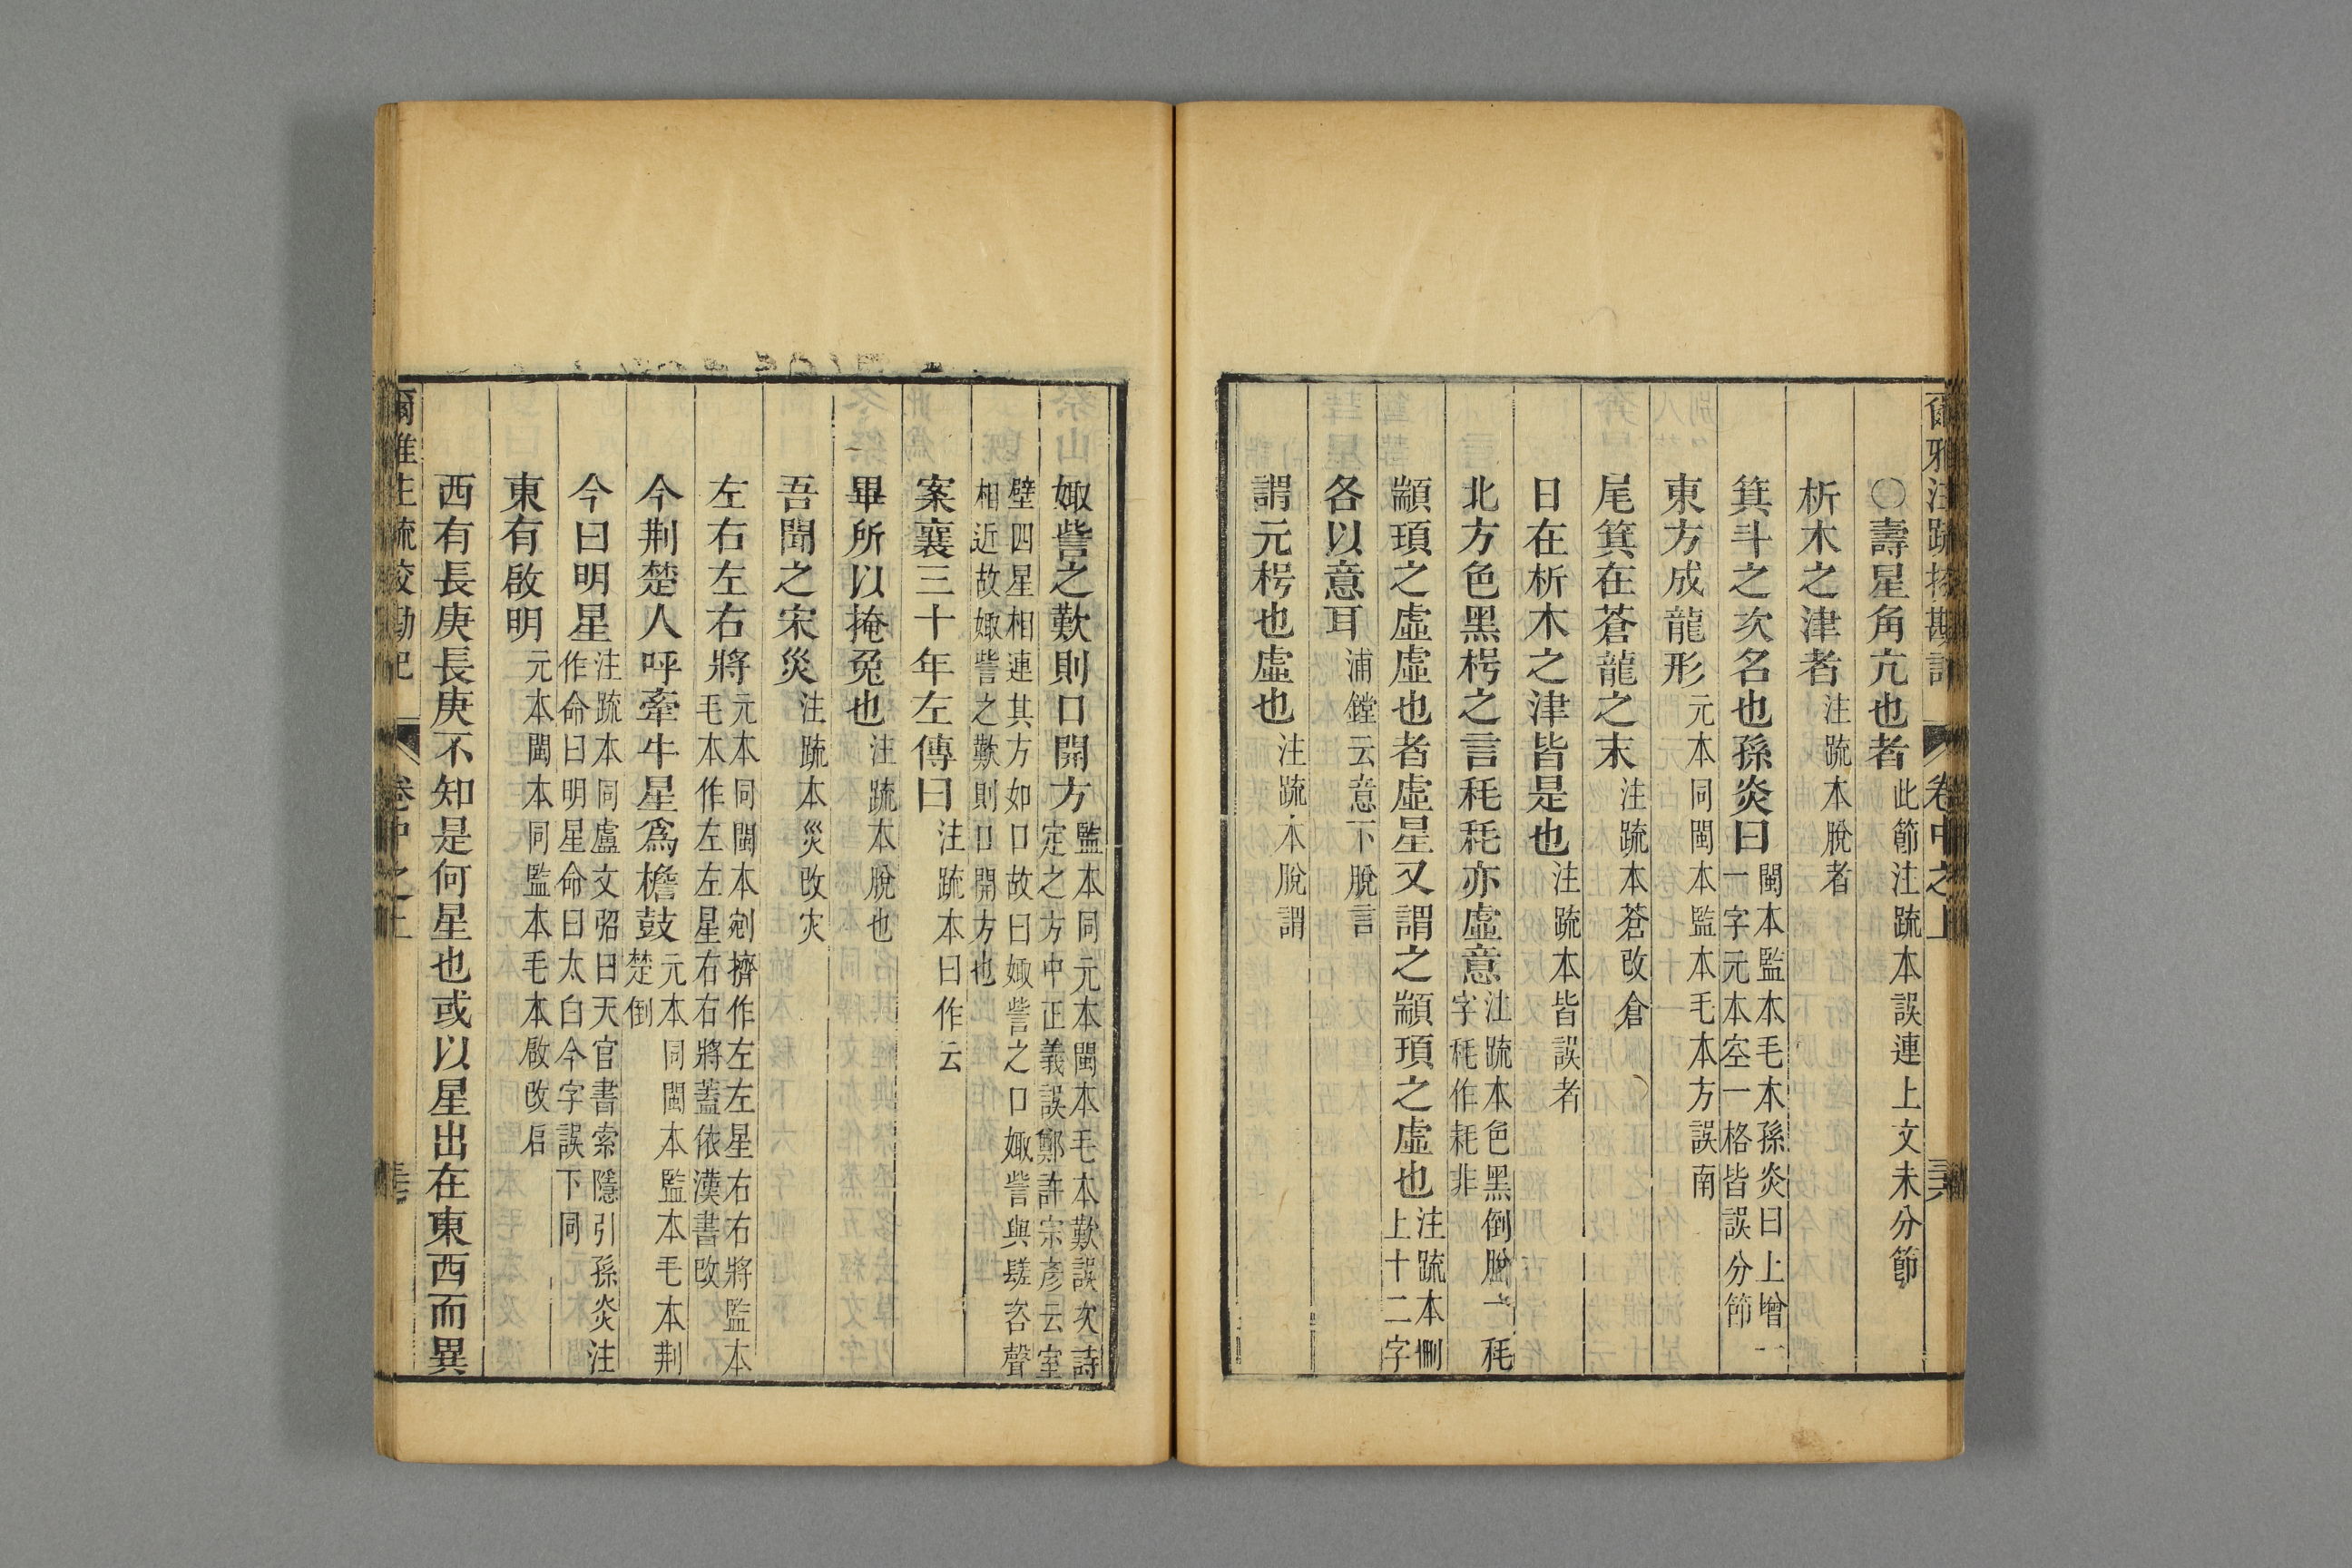 爾雅注疏挍勘記 卷中之上 三六
〇壽星角亢也者此節注疏本誤連上文未分節
析木之津者注疏本脫者
箕斗之次名也孫炎曰閩本監本毛本孫炎曰上增一一字元本空一格皆誤分節
東方成龍形元本同閩本監本毛本方誤南
尾箕在蒼龍之末注疏本蒼改倉
日在析木之津皆是也注疏本皆誤者
北方色黑枵之言秏秏亦虛意注疏本色黑倒脫一秏字秏作耗非
顓頊之虛虛也者虛星又謂之顓頊之虛也注疏本刪上十二字
各以意耳浦鏜云意下脫言
謂元枵也虛也注疏本脫謂
娵訾之歎則口開方監本同元本閩本毛本歎誤次詩定之方中正義誤鄭許宗彥云室
壁四星相連其方如口故曰娵訾之口娵訾與嗟咨聲相近故娵訾之歎則口開方也
案襄三十年左傳曰注疏本曰作云
畢所以掩兔也注疏本脫也
吾聞之宋災注疏本災改灾
左右左右將元本同閩本剜擠作左左星右右將監本毛本作左左星右右將蓋依漢書改
今荆楚人呼牽牛星爲檐鼓元本同閩本監本毛本荆楚倒
今曰明星注疏本同盧文弨曰天官書索隱引孫炎注作命曰明星命曰太白今字誤下同
東有啟明元本閩本同監本毛本啟改启
西有長庚長庚不知是何星也或以星出在東西而異
爾雅注疏挍勘記 卷中之上